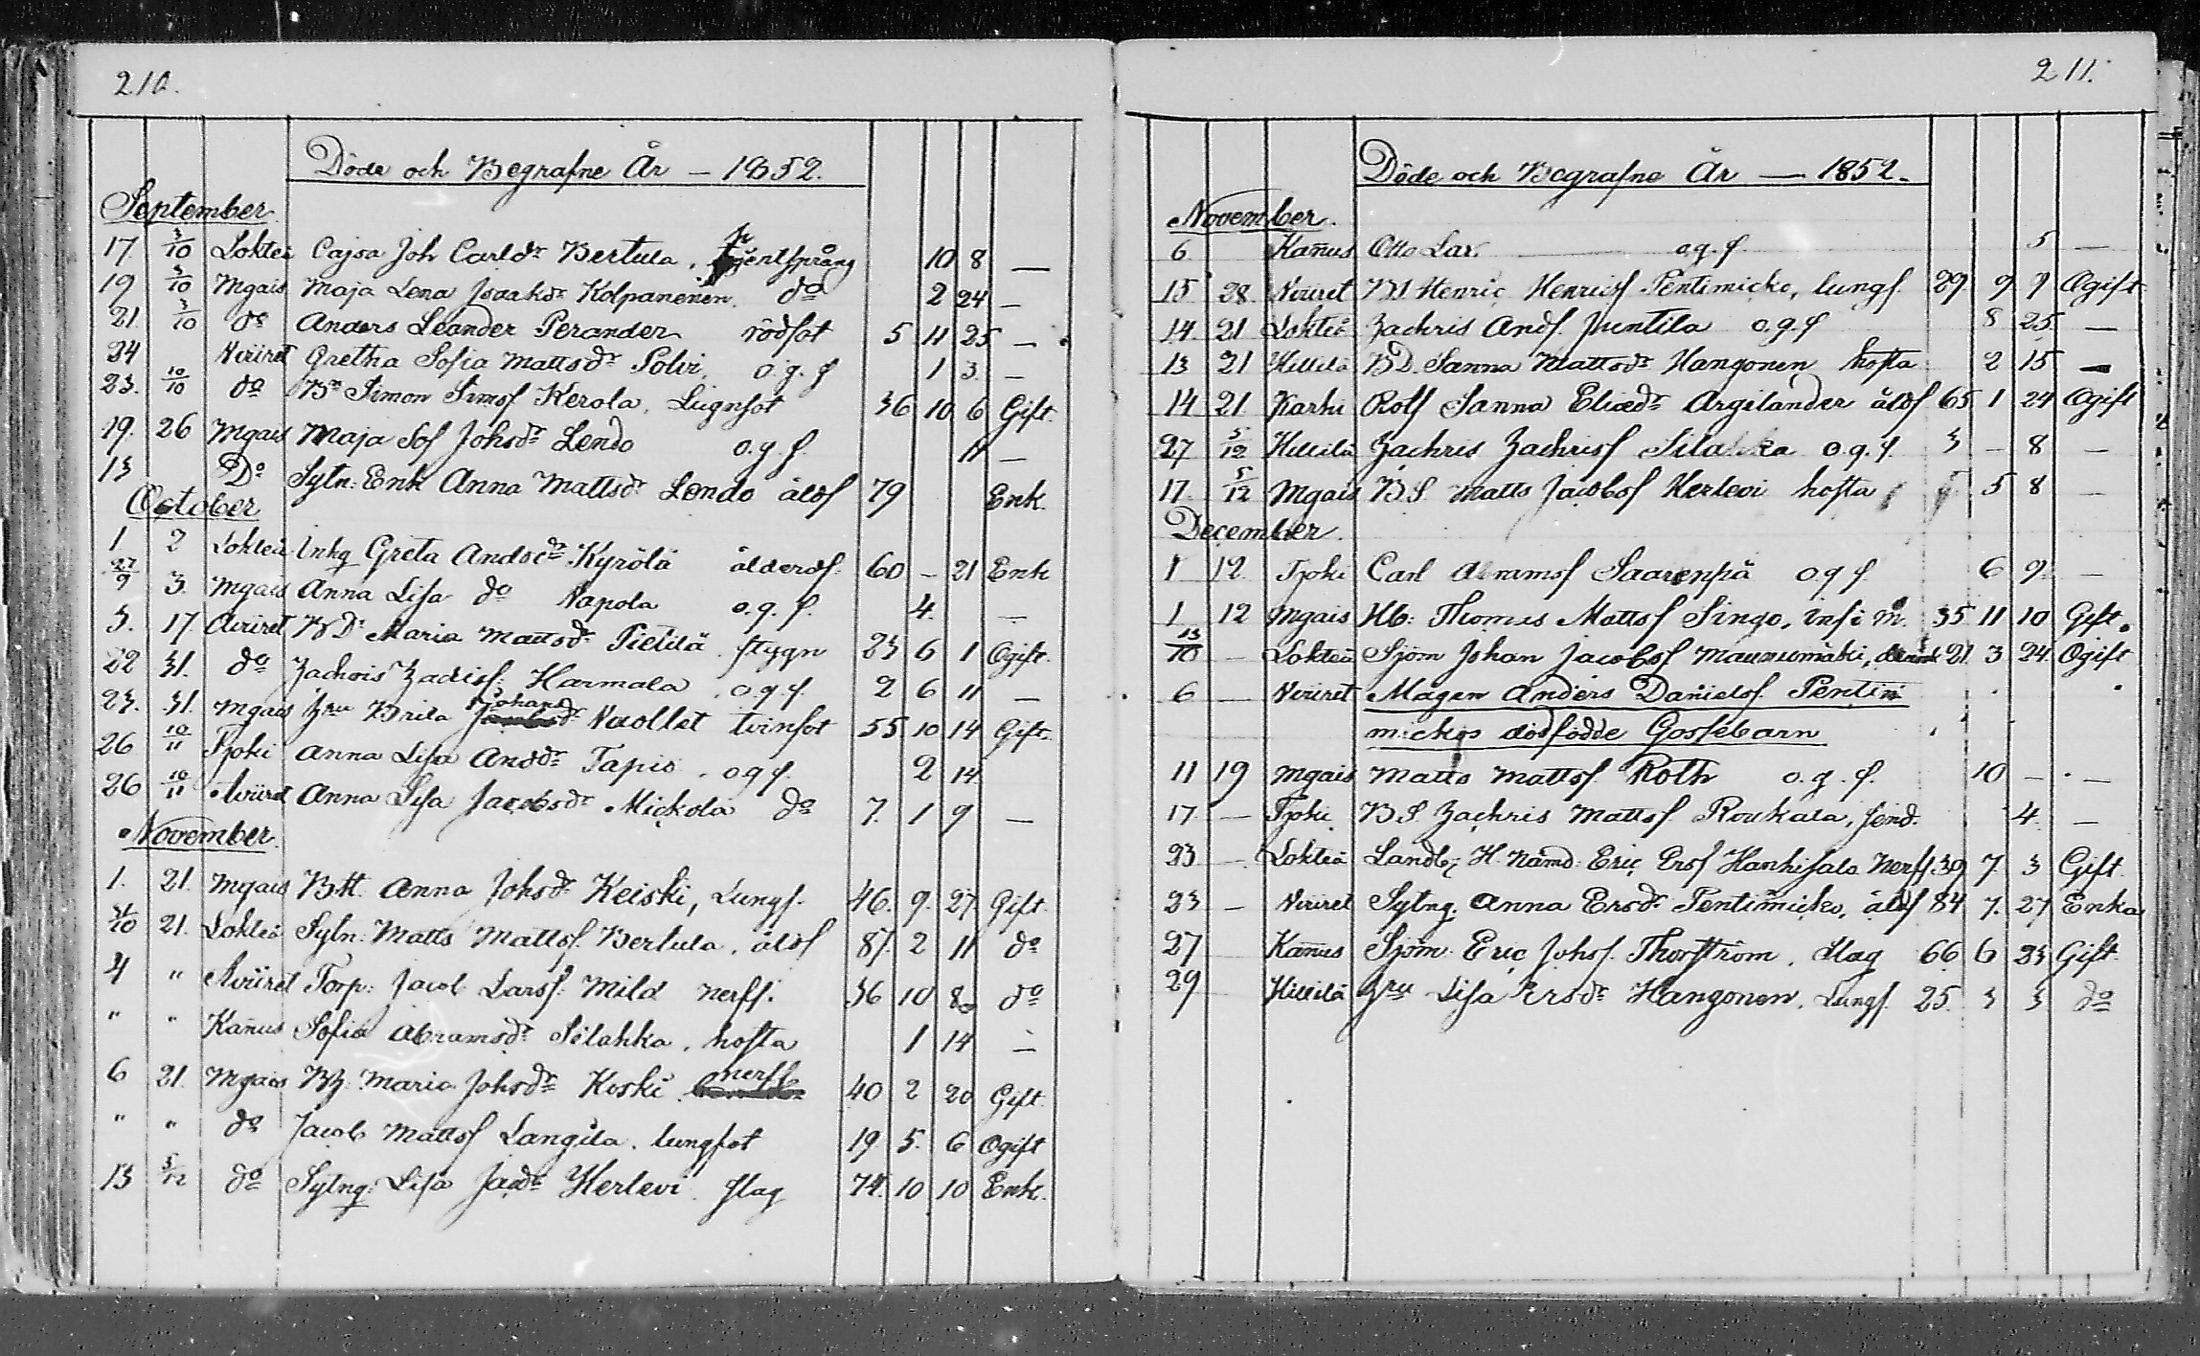 210.
Döde och Begrafne År — 1852.
September
17 3/10 Lokteå Cajsa Joh Carlsdr Bertula, hjertsprång 10 8 —
19 3/10 Mgais Maja Lena Isaaksdr Kolpanenen. do 2 24 —
21. 3/10 do Anders Leander Perander rödsot 5 11 25 —
24 Wiiret Gretha Sofia Mattsdr Polvi. o.g.f 1 3 —
23. 10/10 do Bn Simon Simsf Kerola, Lugnsot 36 10 6 Gift.
19. 26 Mgais Maja Sof Johsdr Lendo o.g.f. 11 —
13 Do Sytn: Enk Anna Mattsdr Lendo åldf 79 Enk.
October
1 2 Lokteå Inhg Greta Andsdr Kyrölä ålderdf. 60 — 21 Enk
27/9 3. Mgais Anna Lisa do Napola o.g.f. 4. —
3. 17. Wiiret BDr Maria Mattsdr Pietilä. stygn 23 6 1 Ogift.
22 31. do Zachris Zachrisf. Harmala. o.g.f. 2 6 11 —
23. 31. Mgais Hru Brita Johansdr Wuollet tvinsot 55 10 14 Gift.
26 10/11 Ypoki Anna Lisa Andsdr Tapio. o g f. 2 14
26 10/11 Wiiret Anna Lisa Jacobsdr Mickola do 7. 1 9 —
November
1. 21. Mgais BH. Anna Johsdr Keiski, Lungs. 46. 9. 27. Gift.
31/10 21. Lokteå Sytn: Matts Mattsf. Bertula. åldf 87. 2 11 do
4 " Wiiret Torp: Jacob Larsf: Mild nerff. 36 10 8 do
" " Kañus Sofia Abramsdr Silahka. hosta 1 14 —
6 21. Mgais BH. Maria Johsdr Koski. nerff 40 2 20 Gift.
" " do Jacob Mattsf Langila. lungsot 19 5. 6 Ogift
13 5/12 do Sytng: Lisa Jacdr Herlevi. slag 74. 10 10 Enk.
211.
Döde och Begrafne År — 1852.
November.
6. Kañus Otto Lax. o.g.f 5 —
15 28. Wiiret BS Henric Henricsf Pentimicko, lungs. 29. 9 9 Ogift
14. 21 Lokteå Zachris Andf. Puntila o.g.f 8 25 —
13 21 Hillilä BD. Sanna Mattsdr Hangonen hosta 2 15 —
14 21 Karhi Rolf Sanna Eliædr Argilander åldf 65 1 24 Ogift
27 5/12 Hillilä Zachris Zachrisf Silahka o.g.f. 3 — 8 —
17. 5/12 Mgais BS. Matts Jacobsf Herlevi hosta 5 8 —
December.
1 12. Ypoki Carl Abramsf Saarenpä o g f. 6 9. —
1 12 Mgais Hb: Thomas Mattsf Singo, 35 11 10 Gift.
13/10 — Lokteå Sjöm Johan Jacobsf Maunumäki, 21. 3 24. Ogift
6 — Wiiret Mågen Anders Danielsf. Pentin
mickos dödfödde Gossebarn
11 19 Mgais Matts Mattsf. Roth o.g.f. 10 — —
17. — Ypoki BS. Zachris Mattsf. Roukala, 4. —
23 — Lokteå Landb: H. Nämd: Eric Ersf Hanhisalo Nerff. 39 7. 3 Gift.
23 — Wiiret Sytng: Anna Ersdr Pentimicko, åldf 84 7. 27 Enka
27 Kañus Sjöm: Eric Johsf. Thorström. slag 66 6 23 Gift.
29 Hillilä Hru Lisa Ersdr Hangonen. Lungs. 25. 3 3 do